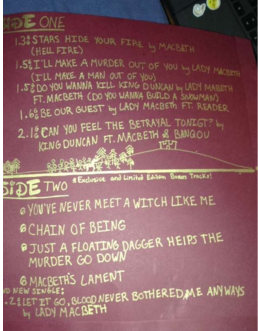 SIDE ONE
1.3: STARS HIDE YOUR FIRE by MACBETH
(HELL FIRE)
1.5: I'LL MAKE A MURDER OUT OF YOU by LADY MACBETH
(I'LL MAKE A MAN OUT OF YOU)
1.5: DO YOU WANNA KILL KING DUNCAN by LADY MABETH
FT. MACBETH (DO YOU WANNA BUILD A SNOWMAN)
1.6: BE OUR GUEST by LADY MACBETH FT. READER
2.1: CAN YOU FEEL THE BETRAYAL TONIGHT? by
KING DUNCAN FT. MACBETH & BANQOU
SIDE TWO
*Exclusive and Limited Edition Bonus Tracks!
YOU'VE NEVER MEET A WITCH LIKE ME
CHAIN OF BEING
JUST A FLOATING DAGGER HELPS THE
MURDER GO DOWN
MACBETH'S LAMENT
NEW SINGLE:
.2: LET IT GO, BLOOD NEVER BOTHERED ME ANYWAYS
by LADY MACBETH